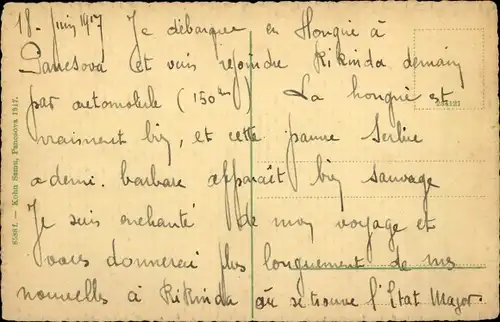 18. Juin 1917 Je débarque en Hongrie à
Pancsova et vais rejoindre Kikinda demain
par automobile (150 km) La hongrie est
vraiment bien, et cette pauvre Serbie
a demi. barbare apparaît bien sauvage
Je suis enchanté de mon voyage et
vous donnerai plus longuement de mes
nouvelles à Kikinda où se trouve l'Etat Major.
Kohn Samu, Pancsova 1917.